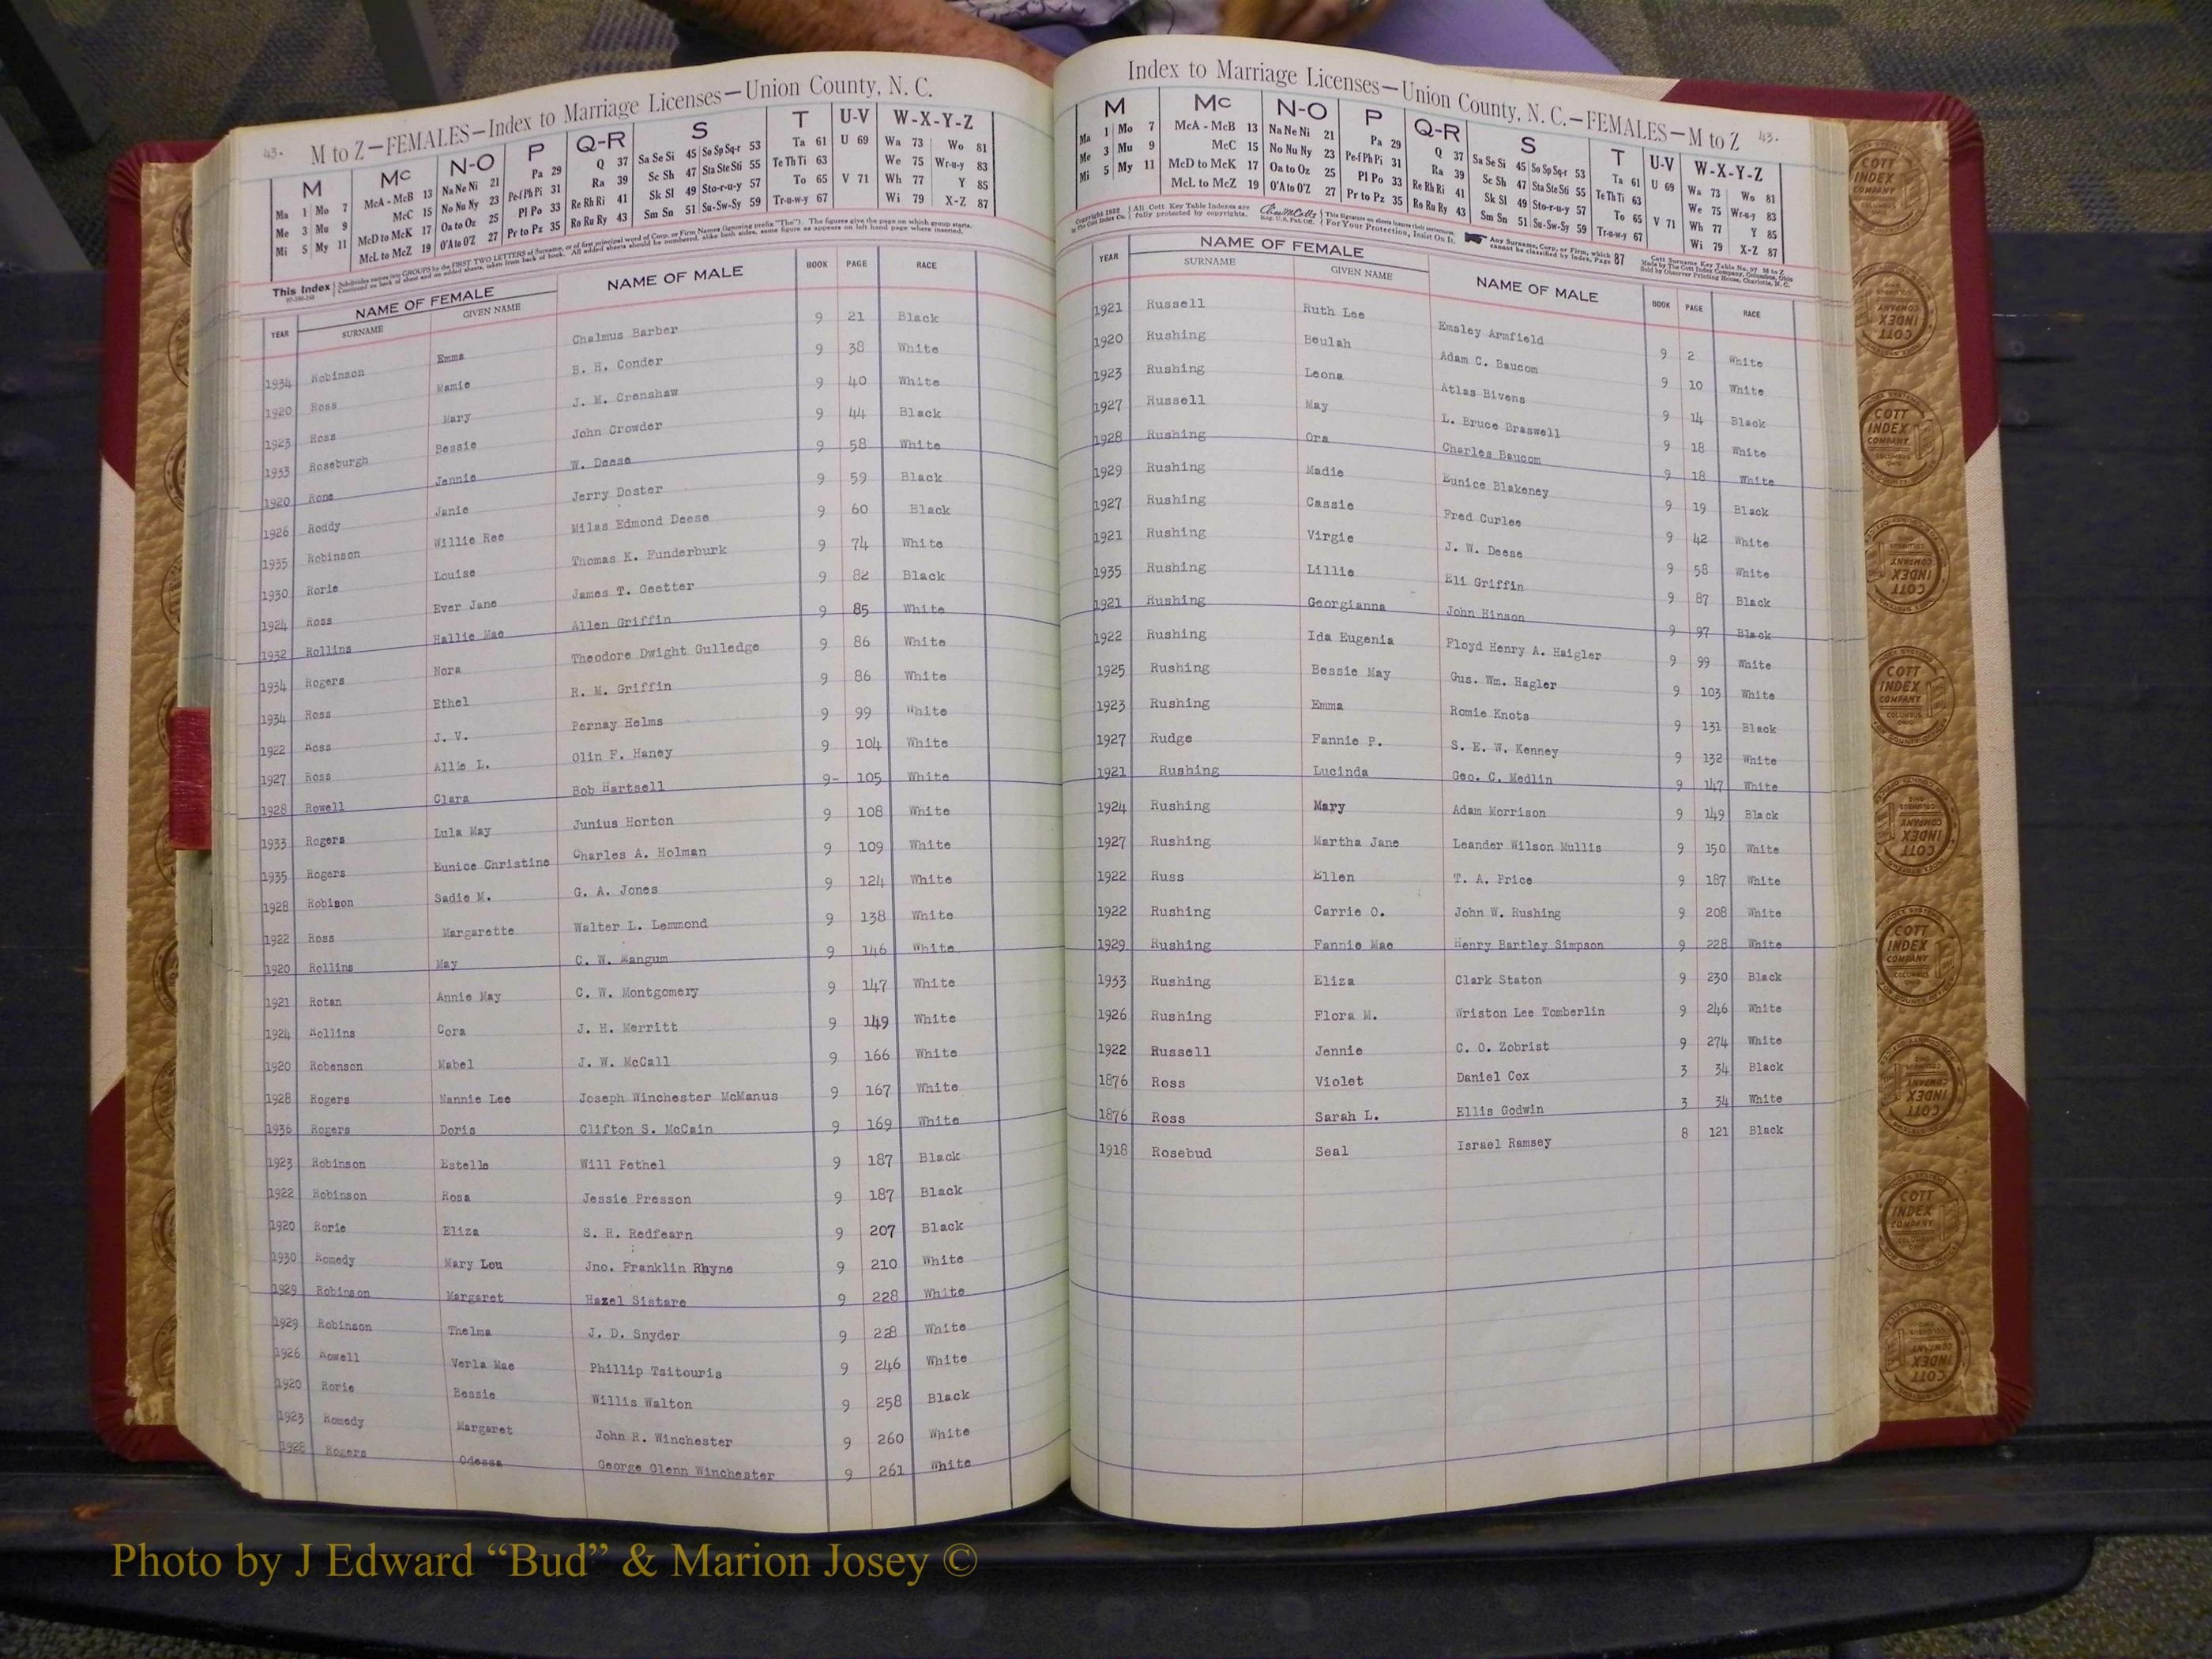 Index to Marriage Licenses—Union County, N. C.
43. M to Z—FEMALES—Index to Marriage Licenses—Union County, N. C.
M Mc N-O P Q-R S T U-V W-X-Y-Z
Ma 1 Mo 7 McA - McB 13 Na Ne Ni 21 Pa 29 Q 37 Sa Se Si 45 So Sp Sq-r 53 Ta 61 U 69 Wa 73 Wo 81
Me 3 Mu 9 McC 15 No Nu Ny 23 Pe-f Ph Pi 31 Ra 39 Sc Sh 47 Sta Ste Sti 55 Te Th Ti 63 We 75 Wr-u-y 83
Mi 5 My 11 McD to McK 17 Oa to Oz 25 Pl Po 33 Re Rh Ri 41 Sk Sl 49 Sto-r-u-y 57 To 65 V 71 Wh 77 Y 85
McL to McZ 19 O'A to O'Z 27 Pr to Pz 35 Ro Ru Ry 43 Sm Sn 51 Su-Sw-Sy 59 Tr-u-w-y 67 Wi 79 X-Z 87
This Index
YEAR NAME OF FEMALE NAME OF MALE BOOK PAGE RACE
SURNAME GIVEN NAME
1934 Robinson Emma Chalmus Barber 9 21 Black
1920 Ross Mamie B. H. Conder 9 38 White
1923 Ross Mary J. M. Crenshaw 9 40 White
1933 Roseburgh Bessie John Crowder 9 44 Black
1920 Rone Jennie W. Deese 9 58 White
1926 Roddy Janie Jerry Doster 9 59 Black
1935 Robinson Willie Ree Milas Edmond Deese 9 60 Black
1930 Rorie Louise Thomas K. Funderburk 9 74 White
1924 Ross Ever Jane James T. Geetter 9 82 Black
1932 Rollins Hallie Mae Allen Griffin 9 85 White
1934 Rogers Nora Theodore Dwight Gulledge 9 86 White
1934 Ross Ethel R. M. Griffin 9 86 White
1922 Ross J. V. Pernay Helms 9 99 White
1927 Ross Allie L. Olin F. Haney 9 104 White
1928 Rowell Clara Bob Hartsell 9- 105 White
1933 Rogers Lula May Junius Horton 9 108 White
1935 Rogers Eunice Christine Charles A. Holman 9 109 White
1928 Robison Sadie M. G. A. Jones 9 124 White
1922 Ross Margarette Walter L. Lemmond 9 138 White
1920 Rollins May C. W. Mangum 9 146 White
1921 Rotan Annie May C. W. Montgomery 9 147 White
1924 Rollins Cora J. H. Merritt 9 149 White
1920 Robenson Mabel J. W. McCall 9 166 White
1928 Rogers Nannie Lee Joseph Winchester McManus 9 167 White
1936 Rogers Doris Clifton S. McCain 9 169 White
1923 Robinson Estelle Will Pethel 9 187 Black
1922 Robinson Rosa Jessie Presson 9 187 Black
1920 Rorie Eliza S. R. Redfearn 9 207 Black
1930 Romedy Mary Lou Jno. Franklin Rhyne 9 210 White
1929 Robinson Margaret Hazel Sistare 9 228 White
1929 Robinson Thelma J. D. Snyder 9 228 White
1926 Rowell Verla Mae Phillip Tsitouris 9 246 White
1920 Rorie Bessie Willis Walton 9 258 Black
1923 Romedy Margaret John R. Winchester 9 260 White
1928 Rogers Odessa George Glenn Winchester 9 261 White
Index to Marriage Licenses—Union County, N. C.—FEMALES—M to Z 43.
M Mc N-O P Q-R S T U-V W-X-Y-Z
Ma 1 Mo 7 McA - McB 13 Na Ne Ni 21 Pa 29 Q 37 Sa Se Si 45 So Sp Sq-r 53 Ta 61 U 69 Wa 73 Wo 81
Me 3 Mu 9 McC 15 No Nu Ny 23 Pe-f Ph Pi 31 Ra 39 Sc Sh 47 Sta Ste Sti 55 Te Th Ti 63 We 75 Wr-u-y 83
Mi 5 My 11 McD to McK 17 Oa to Oz 25 Pl Po 33 Re Rh Ri 41 Sk Sl 49 Sto-r-u-y 57 To 65 V 71 Wh 77 Y 85
McL to McZ 19 O'A to O'Z 27 Pr to Pz 35 Ro Ru Ry 43 Sm Sn 51 Su-Sw-Sy 59 Tr-u-w-y 67 Wi 79 X-Z 87
All Cott Key Table Indexes are fully protected by copyrights. For Your Protection, Insist On It. Any Surname, Corp. or Firm, which cannot be classified by Index, Page 87
YEAR NAME OF FEMALE NAME OF MALE BOOK PAGE RACE
SURNAME GIVEN NAME
1921 Russell Ruth Lee Emsley Armfield 9 2 White
1920 Rushing Beulah Adam C. Baucom 9 10 White
1923 Rushing Leona Atlas Bivens 9 14 Black
1927 Russell May L. Bruce Braswell 9 18 White
1928 Rushing Ora Charles Baucom 9 18 White
1929 Rushing Madie Eunice Blakeney 9 19 Black
1927 Rushing Cassie Fred Curlee 9 42 White
1921 Rushing Virgie J. W. Deese 9 58 White
1935 Rushing Lillie Eli Griffin 9 87 Black
1921 Rushing Georgianna John Hinson 9 97 Black
1922 Rushing Ida Eugenia Floyd Henry A. Haigler 9 99 White
1925 Rushing Bessie May Gus. Wm. Hagler 9 103 White
1923 Rushing Emma Romie Knots 9 131 Black
1927 Rudge Fannie P. S. E. W. Kenney 9 132 White
1921 Rushing Lucinda Geo. C. Medlin 9 147 White
1924 Rushing Mary Adam Morrison 9 149 Black
1927 Rushing Martha Jane Leander Wilson Mullis 9 150 White
1922 Russ Ellen T. A. Price 9 187 White
1922 Rushing Carrie O. John W. Rushing 9 208 White
1929 Rushing Fannie Mae Henry Bartley Simpson 9 228 White
1933 Rushing Eliza Clark Staton 9 230 Black
1926 Rushing Flora M. Wriston Lee Tomberlin 9 246 White
1922 Russell Jennie C. O. Zobrist 9 274 White
1876 Ross Violet Daniel Cox 3 34 Black
1876 Ross Sarah L. Ellis Godwin 3 34 White
1918 Rosebud Seal Israel Ramsey 8 121 Black
COTT INDEX COMPANY COLUMBUS OHIO
Photo by J Edward “Bud” & Marion Josey ©